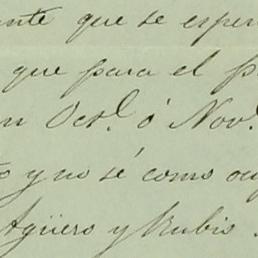 ente que se esper
que para el p
n Oct.l ó Nov.l
o y no sé como
Agüero y Rubio.